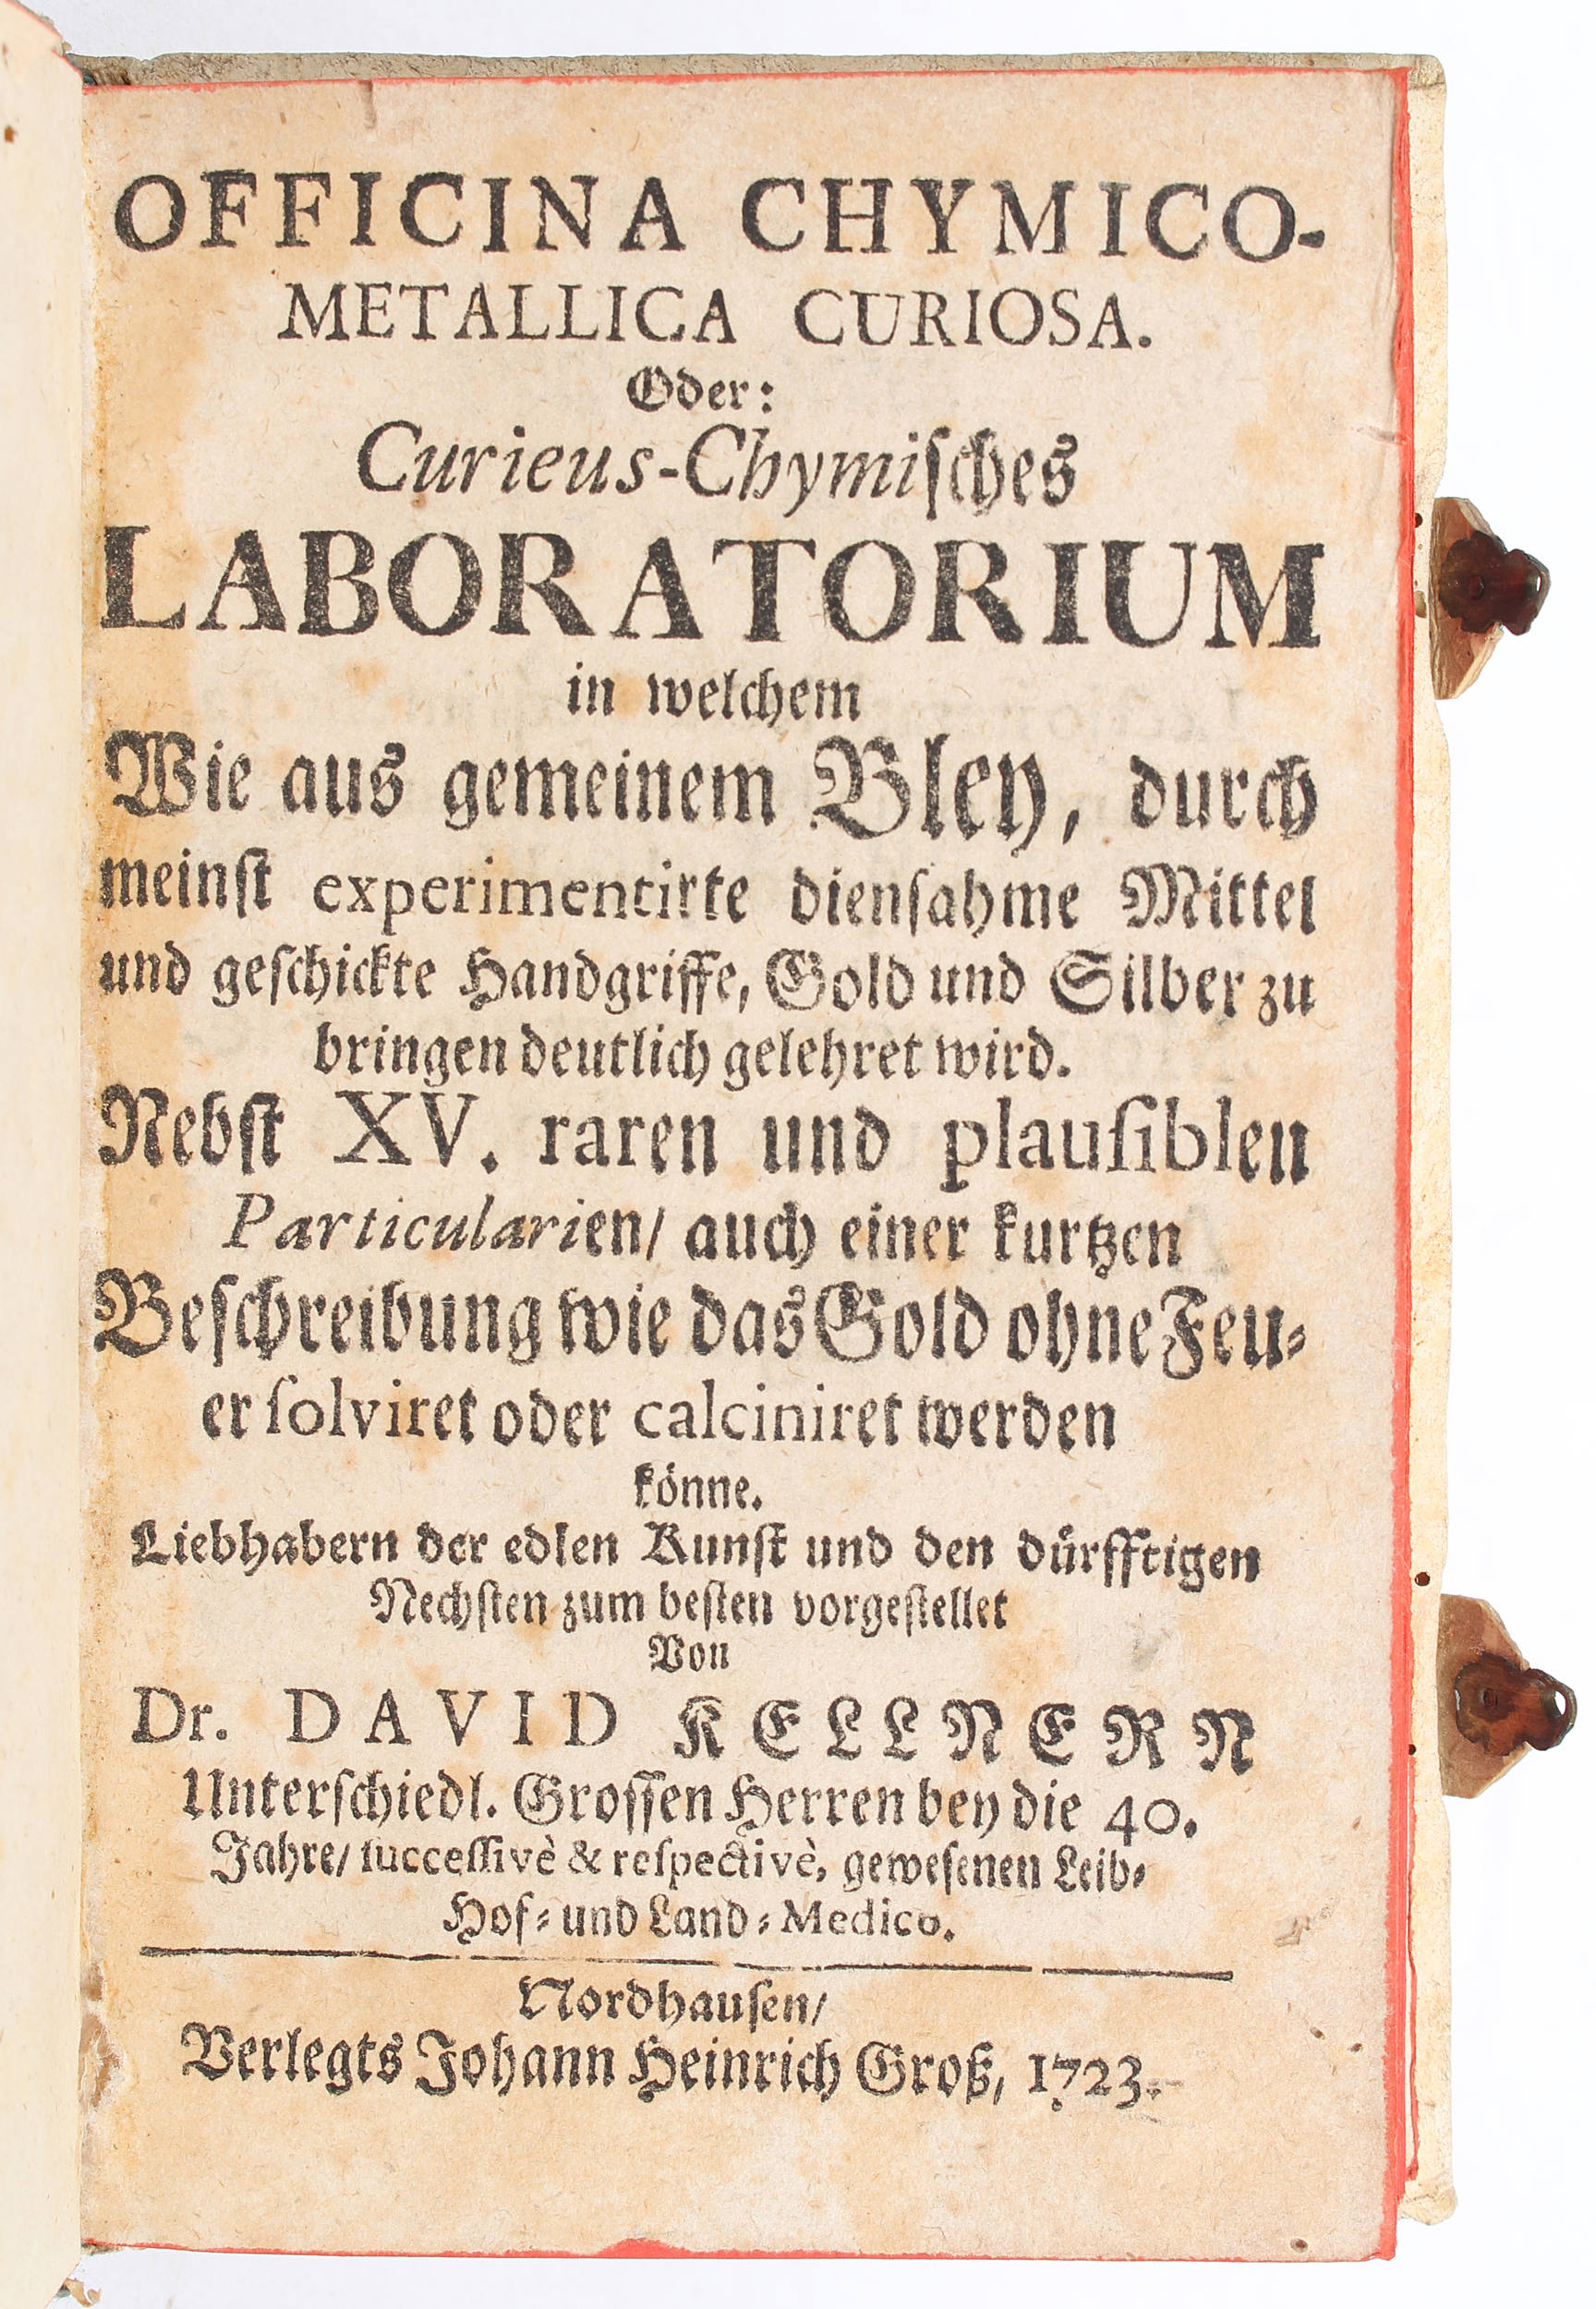 OFFICINA CHYMICO-
METALLICA CURIOSA.
Oder:
Curieus-Chymiſches
LABORATORIUM
in welchem
Wie aus gemeinem Bley, durch
meinſt experimentirte dienſahme Mittel
und geſchickte Handgriffe, Gold und Silber zu
bringen deutlich gelehret wird.
Nebſt XV. raren und plauſiblen
Particularien/ auch einer kurtzen
Beſchreibung wie das Gold ohne Feu⸗
er ſolviret oder calciniret werden
könne.
Liebhabern der edlen Kunſt und den dürfftigen
Nechſten zum beſten vorgeſtellet
Von
Dr. DAVID KELLNERN
Unterſchiedl. Groſſen Herren bey die 40.
Jahre/ ſucceſſivè & reſpectivè, geweſenen Leib⸗
Hof⸗ und Land⸗Medico.
Nordhauſen/
Verlegts Johann Heinrich Groß, 1723.